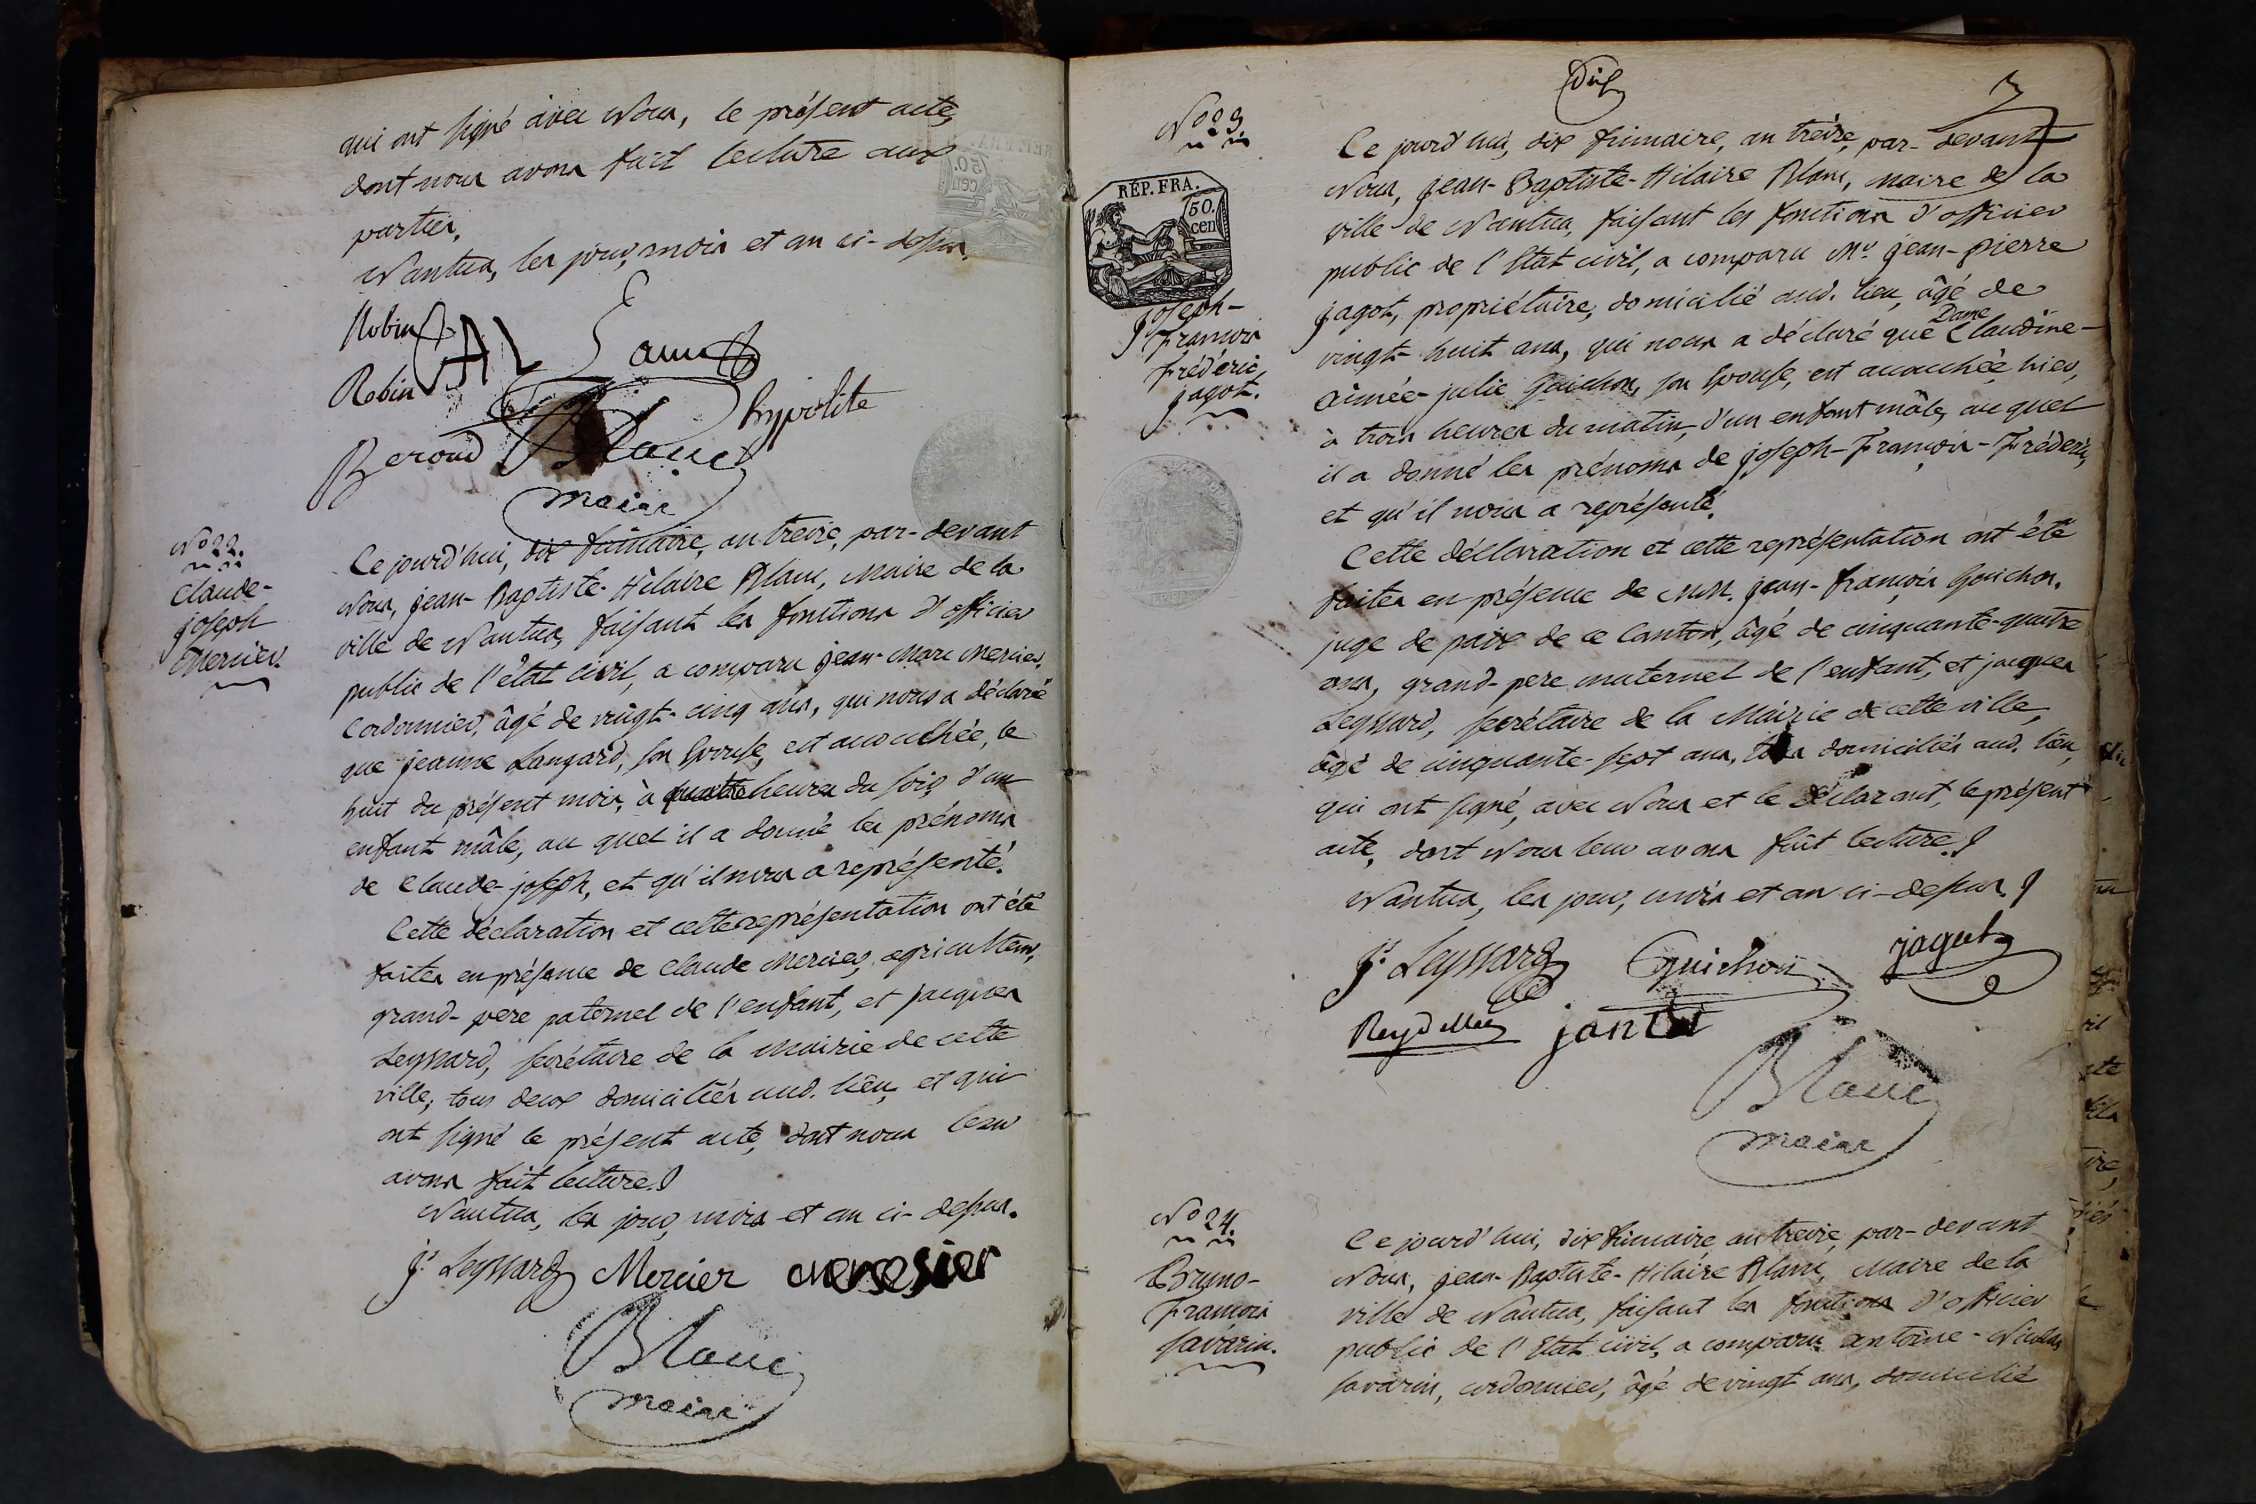 qui ont signé avec Nous, le présent acte,
dont nous avons fait lecture aux
parties.
Nantua, les jour, mois et an ci-dessus.
Robin
Robin
hypolite
Beroud Blanc
maire
No 22.
Claude-
joseph
Mercier.
Ce jourd'hui, dix frimaire, an treize, par-devant
Nous, jean-Baptiste-Hilaire Blanc, Maire de la
ville de Nantua, faisant les fonctions d'officier
public de l'état civil, a comparu jean-Marc Mercier,
Cordonnier, âgé de vingt-cinq ans, qui nous a déclaré
que jeanne Langard, son Epouse, est accouchée, le
huit du présent mois, à quatre heures du soir, d'un
enfant mâle, au quel il a donné les prénoms
de Claude-joseph, et qu'il nous a représenté.
Cette déclaration et cette représentation ont été
faites en présence de Claude Mercier, agriculteur,
grand-pere paternel de l'enfant, et jacques
Leyssard, secrétaire de la Mairie de cette
ville, tous deux domiciliés aud. lieu, et qui
ont signé le présent acte, dont nous leur
avons fait lecture.
Nantua, les jour, mois et an ci-dessus.
Js. Leyssard Mercier mercsier
Blanc
maire
dix
No 23
RÉP. FRA.
50.
cen
joseph-
François
Frédéric,
jagot.
Ce jourd'hui, dix frimaire, an treize, par-devant
Nous, jean-Baptiste-Hilaire Blanc, maire de la
ville de Nantua, faisant les fonctions d'officier
public de l'Etat civil, a comparu Mr. jean-pierre
jagot, propriétaire, domicilié aud. lieu, âgé de
vingt-huit ans, qui nous a déclaré que Dame Claudine-
aimée-julie Guichon, son Epouse, est accouchée, hier,
à trois heures du matin, d'un enfant mâle, au quel
il a donné les prénoms de joseph-François-Fréderic,
et qu'il nous a représenté.
Cette déclaration et cette représentation ont été
faites en présence de MM. jean-françois Guichon,
juge de paix de ce Canton, âgé de cinquante-quatre
ans, grand-pere maternel de l'enfant, et jacques
Leyssard, secrétaire de la Mairie de cette ville,
âgé de cinquante-sept ans, tous domiciliés aud. lieu,
qui ont signé, avec Nous et le déclarant, le présent
acte, dont Nous leur avons fait lecture.
Nantua, les jour, mois et an ci-dessus.
Js. Leyssard Guichon jagot
Blanc
maire
No 24.
Bruno-
François
Savarin.
Ce jourd'hui, dix frimaire, an treize, par-devant
Nous, jean-Baptiste-Hilaire Blanc, Maire de la
ville de Nantua, faisant les fonctions d'officier
public de l'Etat civil, a comparu antoine-Nicolas
Savarin, cordonnier, âgé de vingt ans, domicilié